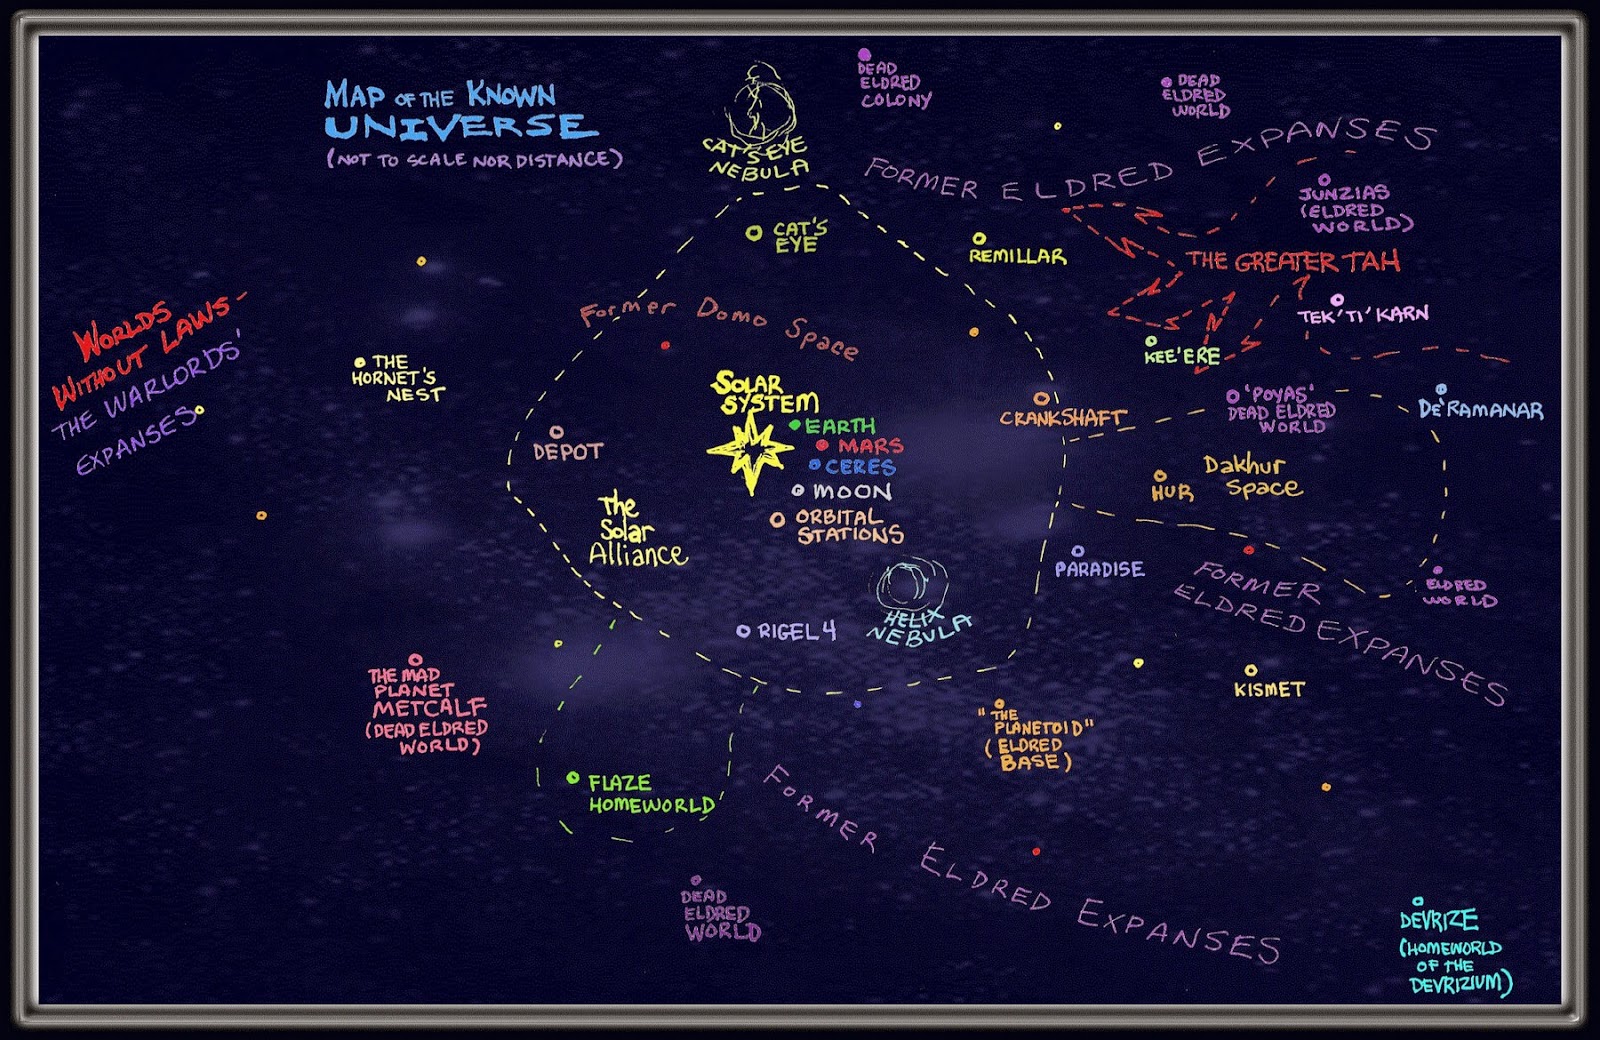 MAP OF THE KNOWN
UNIVERSE
(NOT TO SCALE NOR DISTANCE)
CAT'S EYE
NEBULA
DEAD
ELDRED
COLONY
DEAD
ELDRED
WORLD
FORMER ELDRED EXPANSES
JUNZIAS
(ELDRED
WORLD)
CAT'S
EYE
REMILLAR
THE GREATER TAH
TEK'TI'KARN
KEE'ERE
Former Domo Space
WORLDS
WITHOUT LAWS-
THE WARLORDS'
EXPANSES
THE
HORNET'S
NEST
SOLAR
SYSTEM
EARTH
MARS
CERES
MOON
ORBITAL
STATIONS
CRANKSHAFT
'POYAS'
DEAD ELDRED
WORLD
DE'RAMANAR
DEPOT
HUR
Dakhur
Space
The
Solar
Alliance
PARADISE
FORMER
ELDRED EXPANSES
ELDRED
WORLD
HELIX
NEBULA
RIGEL 4
THE MAD
PLANET
METCALF
(DEAD ELDRED
WORLD)
KISMET
"THE
PLANETOID"
(ELDRED
BASE)
FLAZE
HOMEWORLD
FORMER ELDRED EXPANSES
DEAD
ELDRED
WORLD
DEVRIZE
(HOMEWORLD
OF THE
DEVRIZIUM)